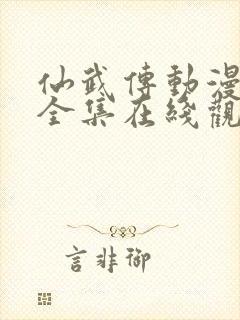 仙武傳動漫
全集在綫觀
言非御